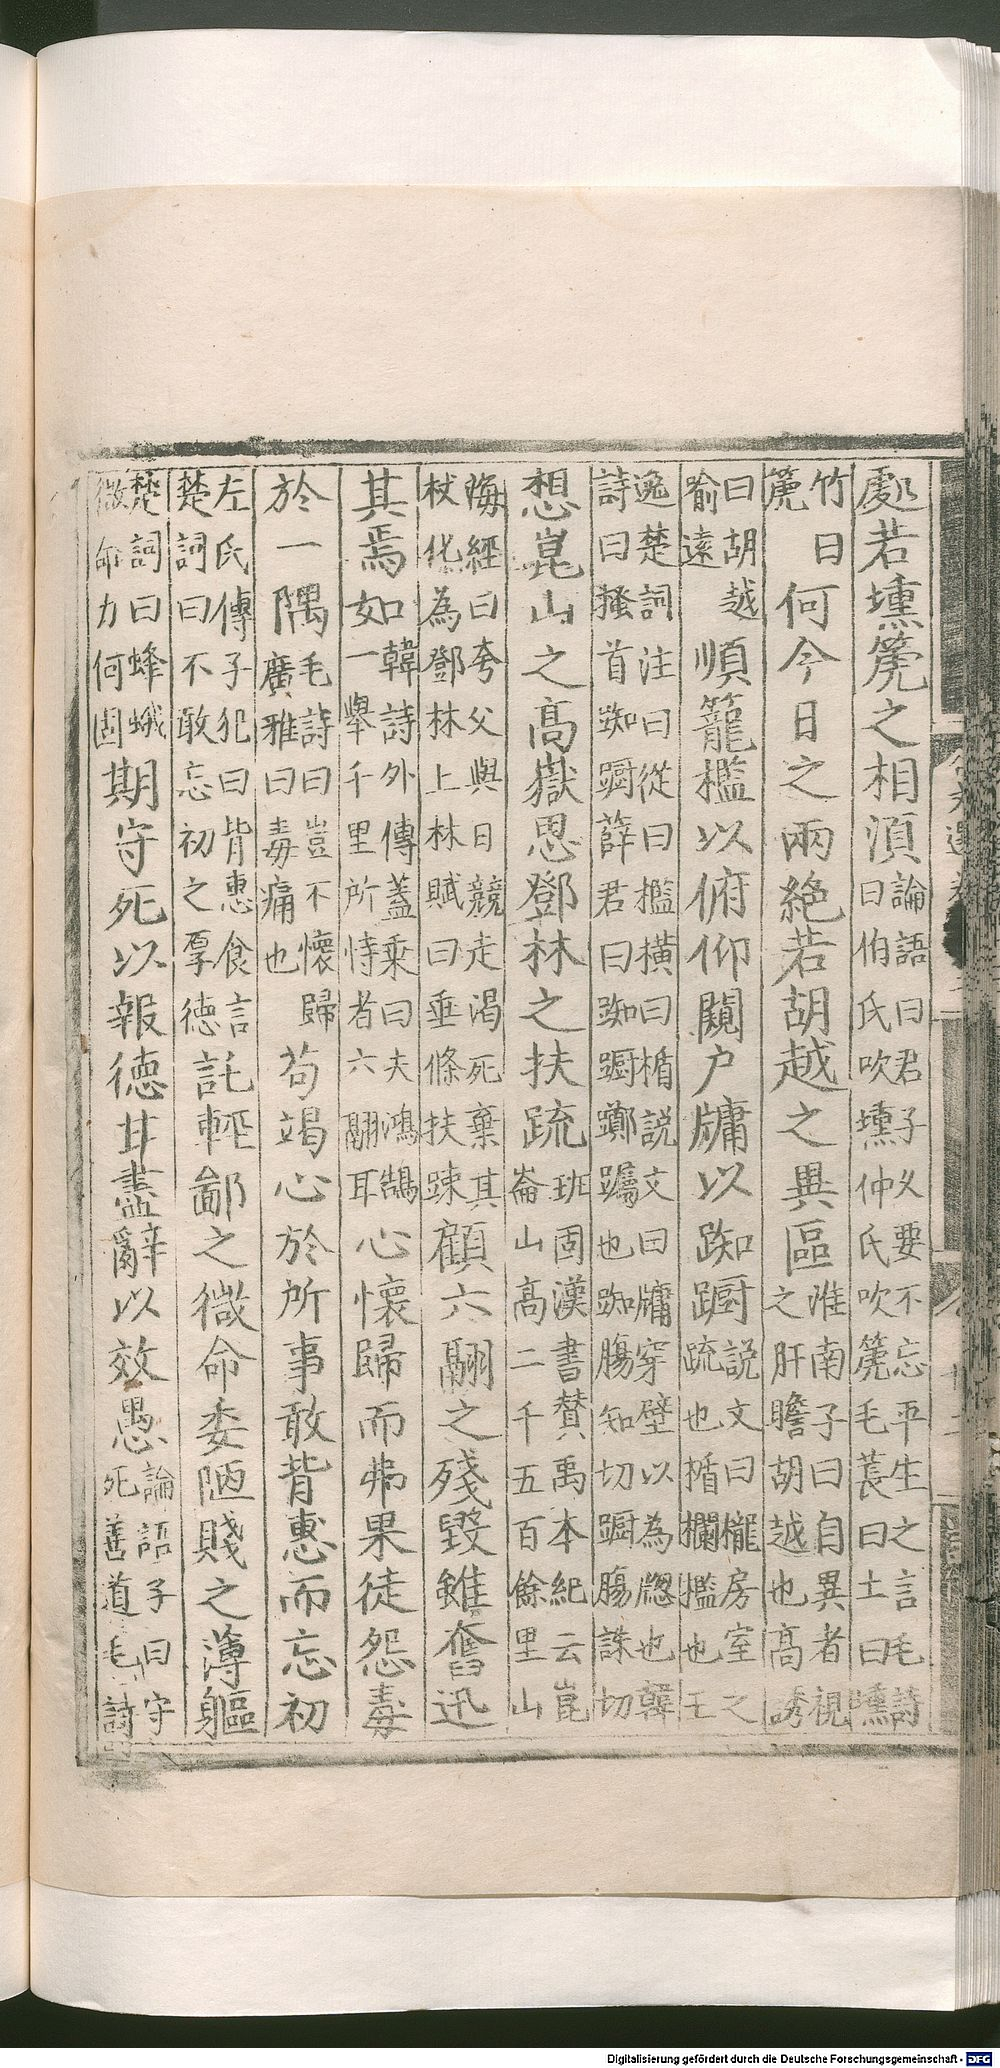 處若壎篪之相湏論語曰君子久要不忘平生之言毛詩曰伯氏吹壎仲氏吹篪毛萇曰土曰壎
竹曰篪何今日之兩絶若胡越之異區淮南子曰自異者視之肝膽胡越也高誘
曰胡越喻遠順籠檻以俯仰闚户牖以踟蹰說文曰櫳房室之疏也楯欄檻也王
逸楚詞注曰從曰檻橫曰楯說文曰牖穿壁以為牕也韓詩曰搔首踟蹰薛君曰踟蹰躑躅也踟腸知切蹰腸誅切
想崑山之高嶽思鄧林之扶疏班固漢書贊禹本紀云崑崙山高二千五百餘里山
海經曰夸父與日競走渴死棄其杖化為鄧林上林賦曰垂條扶踈顧六翮之殘毀雖奮迅
其焉如韓詩外傳蓋乘曰夫鴻鵠一舉千里所恃者六翮耳心懷歸而弗果徒怨毒
於一隅毛詩曰豈不懷歸廣雅曰毒痛也苟竭心於所事敢背惠而忘初
左氏傳子犯曰背惠食言楚詞曰不敢忘初之厚德託輕鄙之微命委陋賤之薄軀
楚詞曰蜂蛾微命力何固期守死以報德甘盡辭以效愚論語子曰守死善道毛詩
Digitalisierung gefördert durch die Deutsche Forschungsgemeinschaft - DFG